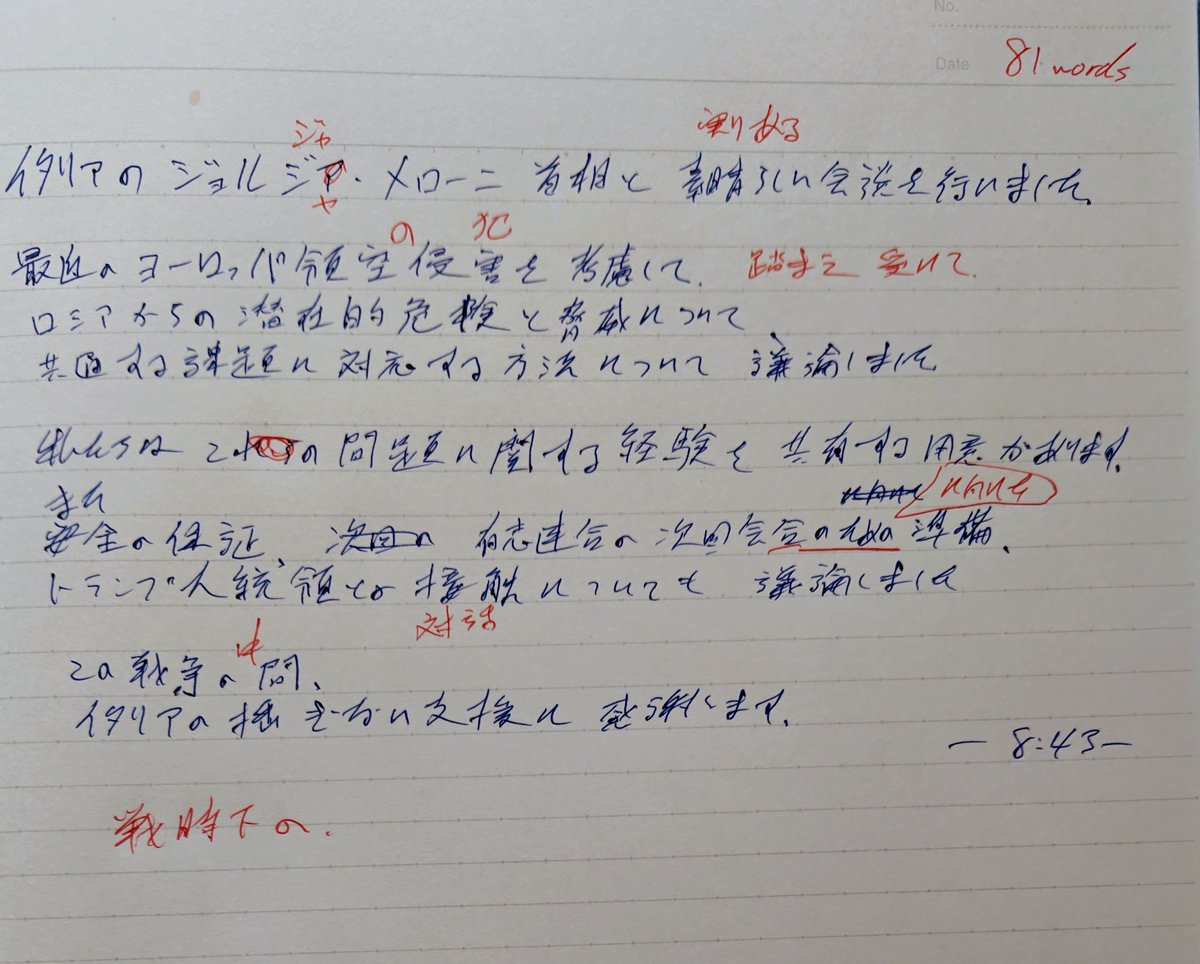 No.
Date 81 words
ジャ 実りある
イタリアのジョルジア・メローニ首相と素晴らしい会談を行いました。
ャ
の 犯
最近のヨーロッパ領空侵害を考慮して、踏まえ 受けて、
ロシアからの潜在的危険と脅威について、
共通する課題に対応する方法について議論しました
私たちはこれらの問題に関する経験を共有する用意があります。
また に向けた に向けた
安全の保証、次回の有志連合の次回会合のための準備、
トランプ大統領との接触についても議論しました
対話
中
この戦争の間、
イタリアの揺るぎない支援に感謝します。
— 8:43 —
戦時下の.